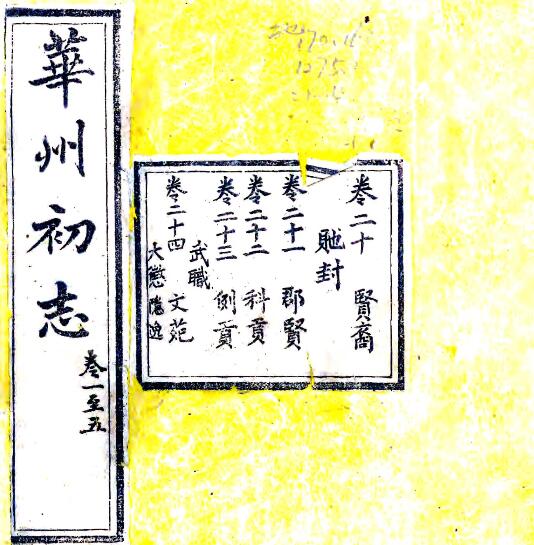 華州初志
卷一至五
卷二十 賢裔
貤封
卷二十一 郡賢
卷二十二 科貢
卷二十三 例貢
武職
卷二十四 文苑
大憝 隱逸